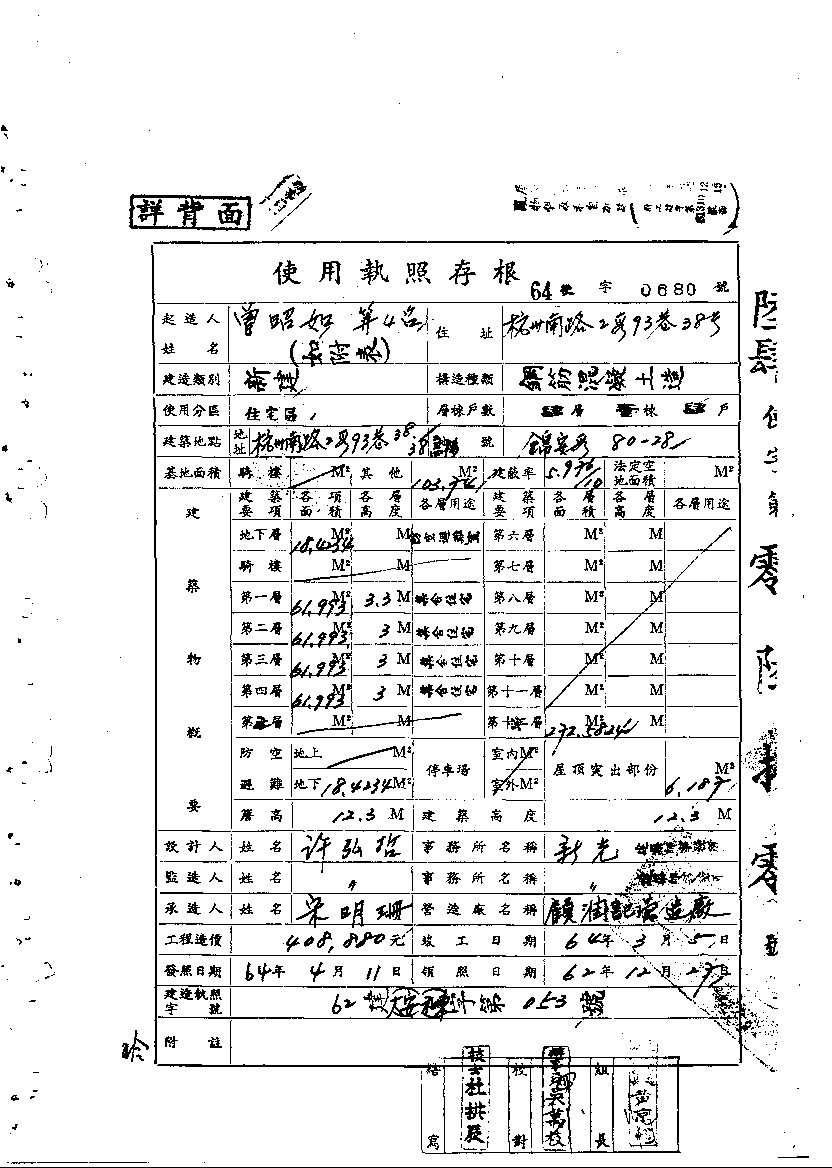 詳背面
使用執照存根
64 字 0680 號
起造人姓名 曾昭如 等4名 (如附表) 住址 杭州南路2段93巷38号
建造類別 新建 構造種類 鋼筋混凝土造
使用分區 住宅區 層棟戶數 層 棟 戶
建築地點 地址 杭州南路2段93巷38 號 錦安段 80-28
基地面積 騎樓 M² 其他 103.74 M² 建蔽率 5.976/10 法定空地面積 M²
建築物概要
建築要項 各項面積 各層高度 各層用途 建築要項 各層面積 各層高度 各層用途
地下層 18.4234 M² M 第六層 M² M
騎樓 M² M 第七層 M² M
第一層 61.993 M² 3.3 M 集合住宅 第八層 M² M
第二層 61.993 M² 3 M 集合住宅 第九層 M² M
第三層 61.993 M² 3 M 集合住宅 第十層 M² M
第四層 61.993 M² 3 M 集合住宅 第十一層 M² M
第 層 M² M 第 層 272.5824 M² M
防空避難 地上 M² 停車場 室內M² 屋頂突出部份 M²
地下 18.4234 M² 室外M² 6.187
簷高 12.3 M 建築高度 12.3 M
設計人 姓名 許弘哲 事務所名稱 新光
監造人 姓名 〃 事務所名稱 〃
承造人 姓名 宋明珊 營造廠名稱 顧潤記營造廠
工程造價 408,880元 竣工日期 64年3月5日
發照日期 64年4月11日 領照日期 62年12月27日
建造執照字號 62建 字第 053 號
附註
繕寫 技士杜拱辰 校對 吳萬枝 組長
陸肆使字第零陸 零號